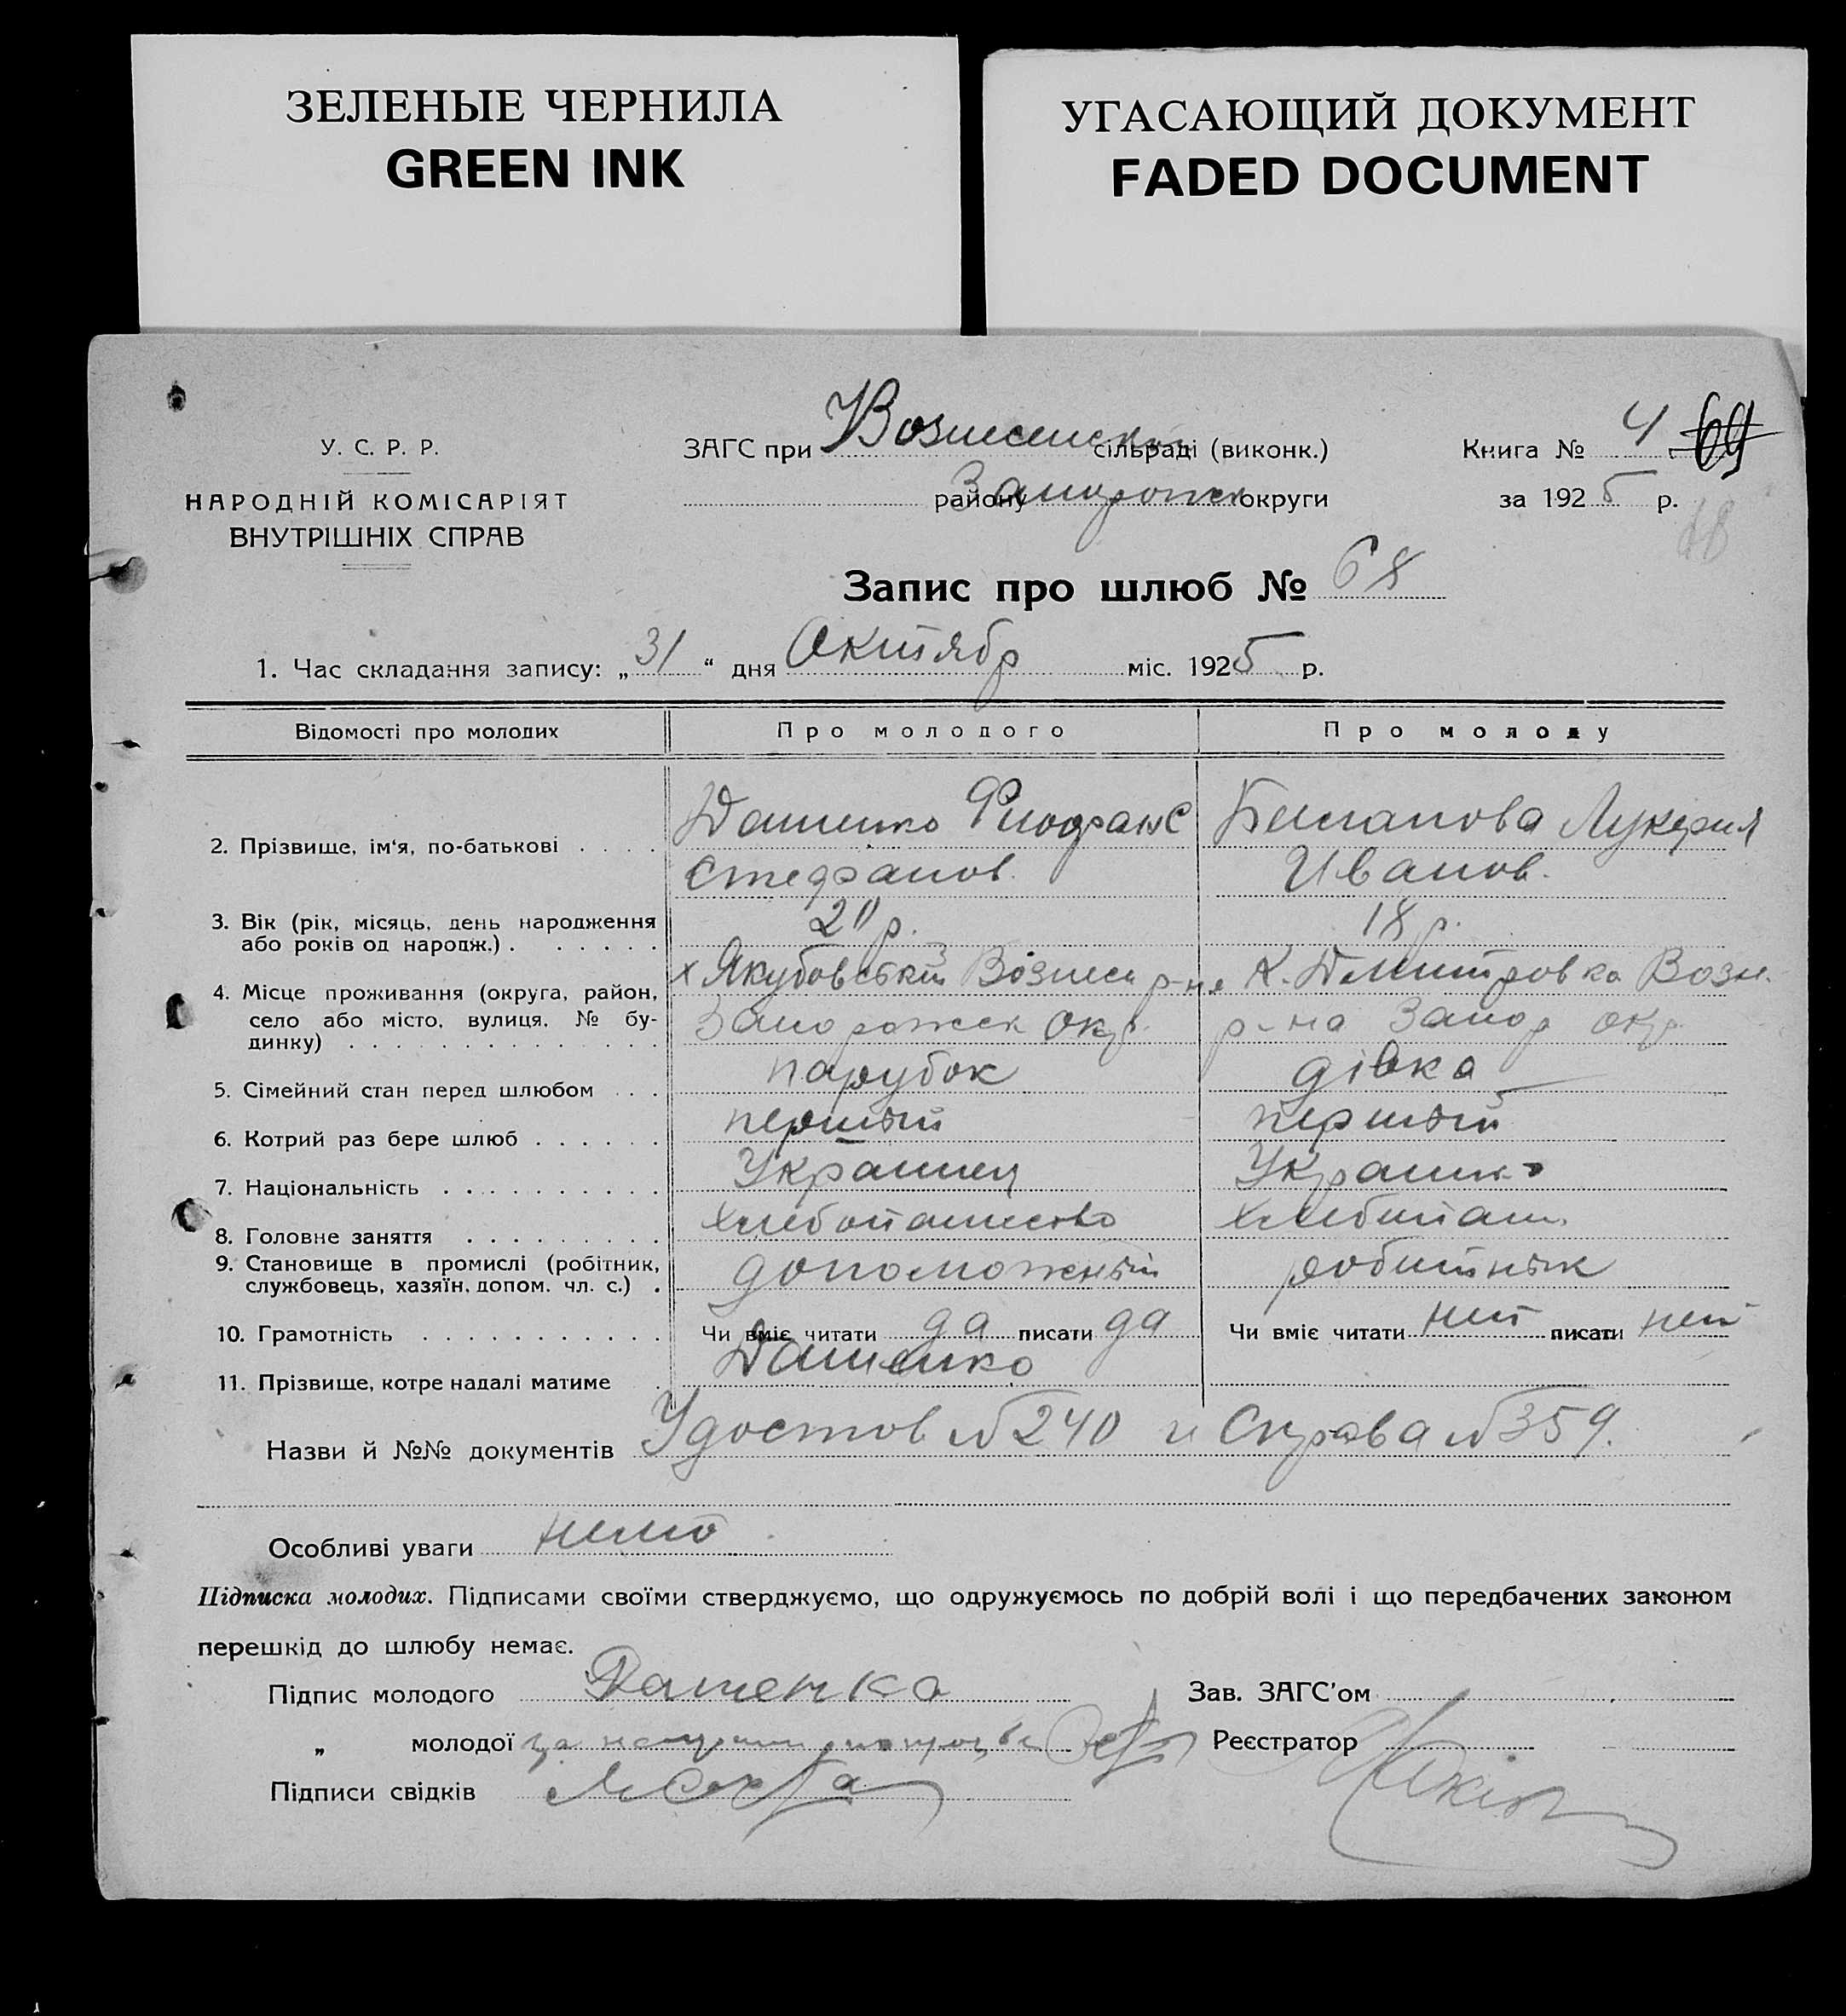 ЗЕЛЕНЫЕ ЧЕРНИЛА
GREEN INK
УГАСАЮЩИЙ ДОКУМЕНТ
FADED DOCUMENT
У. С. Р. Р.
НАРОДНІЙ КОМІСАРІЯТ
ВНУТРІШНІХ СПРАВ
ЗАГС при Вознесенском сільраді (виконк.)
району Запорожск округи
Книга № 4 69
за 1925 р.
Запис про шлюб № 68
1. Час складання запису: „31“ дня Октябр міс. 1925 р.
Відомості про молодих Про молодого Про молоду
2. Прізвище, ім'я, по-батькові Дашенко Лукерия
Стефанов. Иванов.
3. Вік (рік, місяць, день народження
або років од народж.) 20 р. 18 р.
4. Місце проживання (округа, район, х Якубовський Вознесн р-на К. Дмитровка Возн.
село або місто, вулиця, № бу-
динку) Запорожск окр. р-на Запор окр.
5. Сімейний стан перед шлюбом парубок дівка
6. Котрий раз бере шлюб першый першый
7. Національність Украинец Украинк
8. Головне заняття хлебопашество хлебопаш.
9. Становище в промислі (робітник,
службовець, хазяїн, допом. чл. с.) допоможный робитнык
10. Грамотність Чи вміє читати да писати да Чи вміє читати нет писати нет
11. Прізвище, котре надалі матиме Дашенко
Назви й №№ документів Удостов №240 и Справа №359.
Особливі уваги
Підписка молодих. Підписами своїми стверджуємо, що одружуємось по добрій волі і що передбачених законом
перешкід до шлюбу немає.
Підпис молодого Дашенка
Зав. ЗАГС'ом
„ молодої за
Реєстратор
Підписи свідків